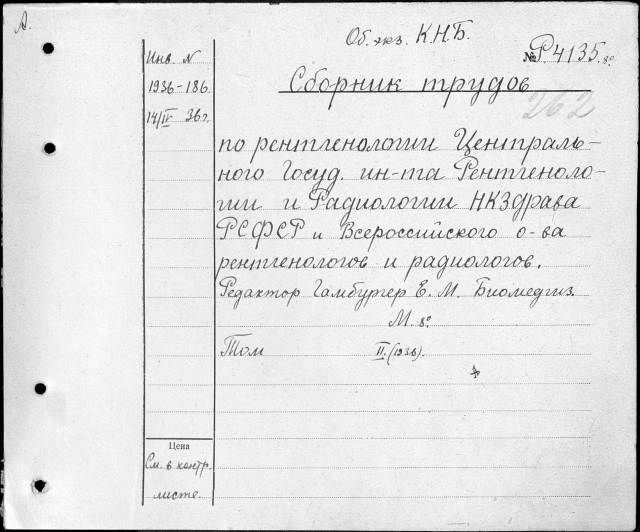 А.
Об. экз. К.Н.Б.
№ Р.4135.8º
Инв. N
1936-186.
14/IV 36 г.
Сборник трудов
262
по рентгенологии Централь-
ного Госуд. ин-та Рентгеноло-
гии и Радиологии НКЗдрава
РСФСР и Всероссийского о-ва
рентгенологов и радиологов.
Редактор Гамбургер Е. М. Биомедгиз.
М. 8º
Том II. (1936).
Цена
См. в контр.
листе.